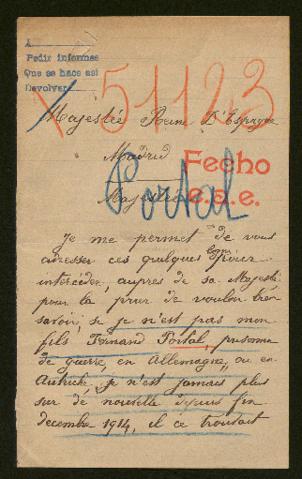 A
Pedir informes
Que se hace así
Devolver
51123
Majestée Reine D'Espagne
Madrid
Fecho
Portal
e.s.e.
Majestée
Je me permet de vous
adresser ces quelques lignes pour
intercéder, aupres de sa Majesté
pour la prier de vouloir
savoir, si je n'est pas mon
fils Fernand Portal, prisonier
de guerre, en Allemagne, ou en
Autriche, je n'est jamais plus
sur de nouvelle depuis fin
decembre 1914, il ce trouvait